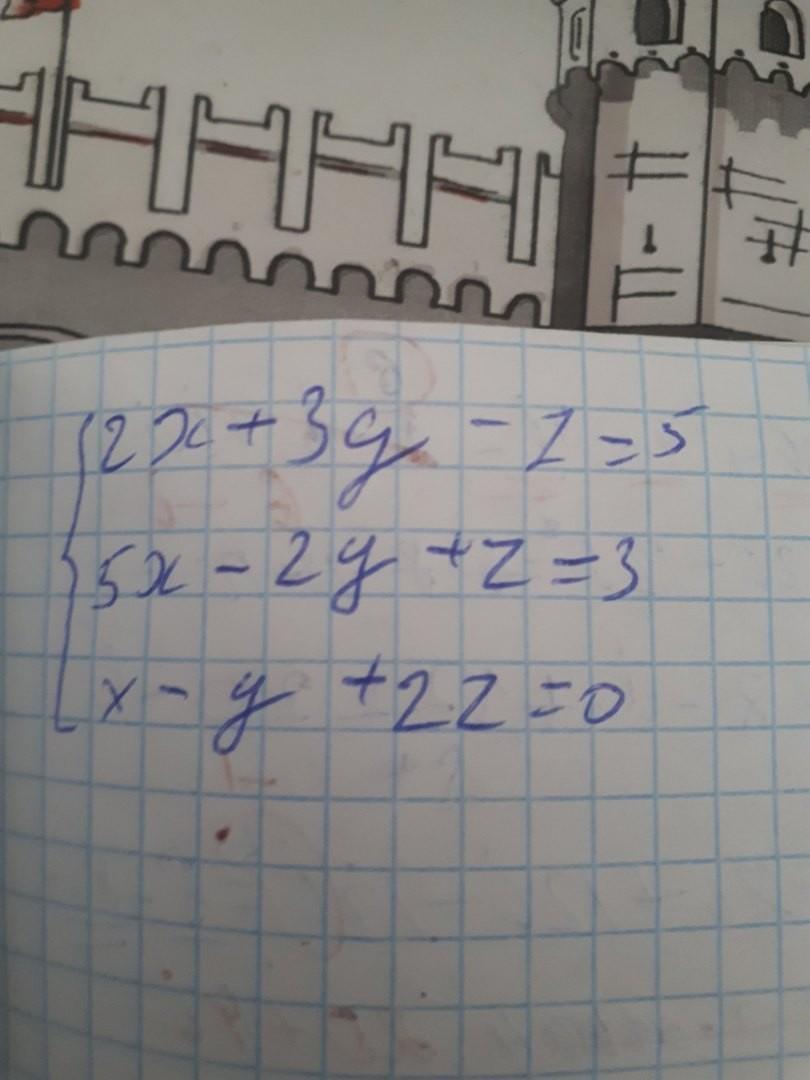 2x + 3y - z = 5
5x - 2y + z = 3
x - y + 2z = 0